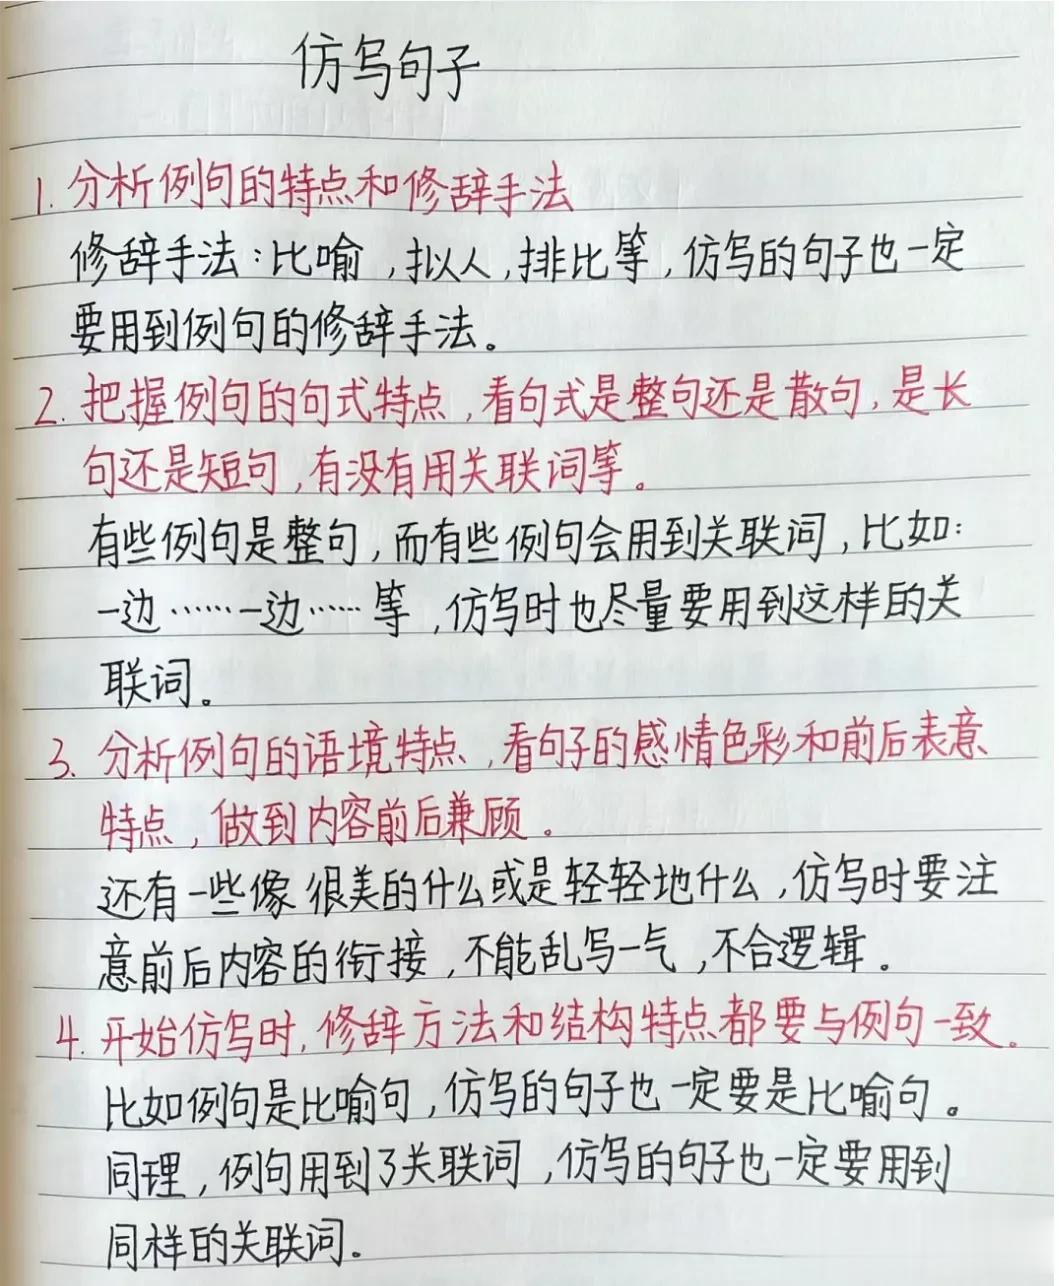 仿写句子
1. 分析例句的特点和修辞手法
修辞手法：比喻，拟人，排比等，仿写的句子也一定
要用到例句的修辞手法。
2. 把握例句的句式特点，看句式是整句还是散句，是长
句还是短句，有没有用关联词等。
有些例句是整句，而有些例句会用到关联词，比如：
一边……一边……等，仿写时也尽量要用到这样的关
联词。
3. 分析例句的语境特点，看句子的感情色彩和前后表意
特点，做到内容前后兼顾。
还有一些像很美的什么或是轻轻地什么，仿写时要注
意前后内容的衔接，不能乱写一气，不合逻辑。
4. 开始仿写时，修辞方法和结构特点都要与例句一致。
比如例句是比喻句，仿写的句子也一定要是比喻句。
同理，例句用到了关联词，仿写的句子也一定要用到
同样的关联词。